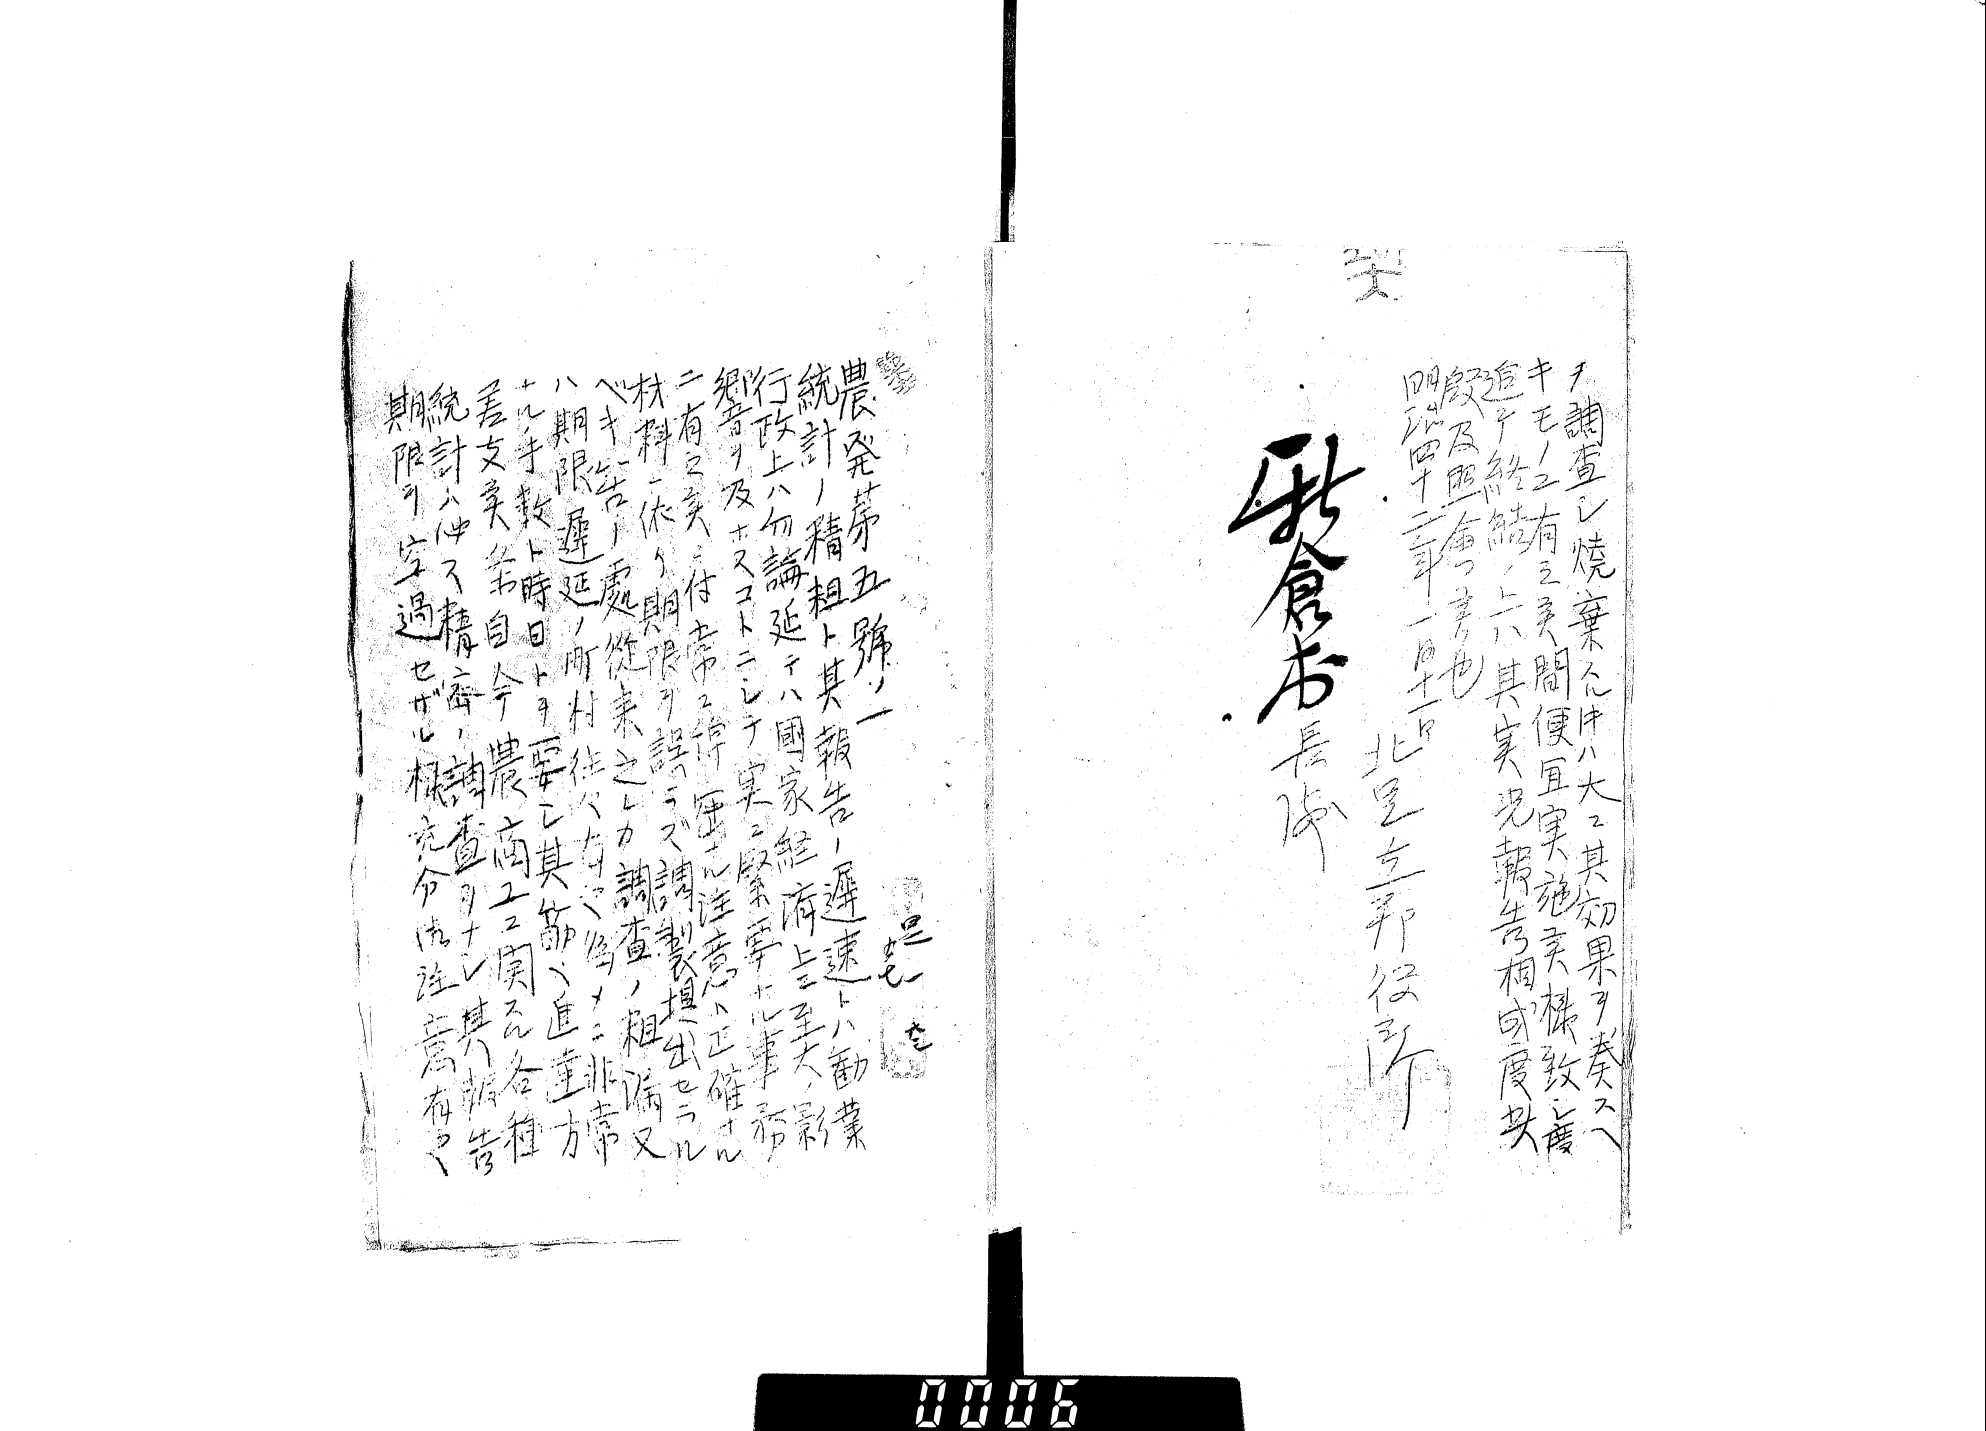 ヲ調査シ焼棄スル時ハ大ニ其効果ヲ奏スヘ
キモノニ有之候間便宜実施候様致シ度
追テ終結ノ上ハ其実況報告相成度此
段及照會候也
明治四十二年一月十一日
北足立郡役所
新倉村長殿
農発第五號ノ一
統計ノ精粗ト其報告ノ遅速トハ勧業
行政上ハ勿論延テハ國家経済上ニ至大ノ影
響ヲ及ホスコトニシテ実ニ緊要ナル事務
ニ有之候ニ付常ニ深甚ナル注意ト正確ナル
材料ニ依リ期限ヲ誤ラズ調製提出セラル
ベキ筈ノ處從来之レカ調査ノ粗漏又
ハ期限遅延ノ町村往々有之為メニ非常
ナル手数ト時日トヲ要シ其筋ヘ進達方
差支候条自今農商工ニ関スル各種
統計ハ伸ス精密ノ調査ヲナシ其報告
期限ヲ空過セザル様充分御注意有之
0006